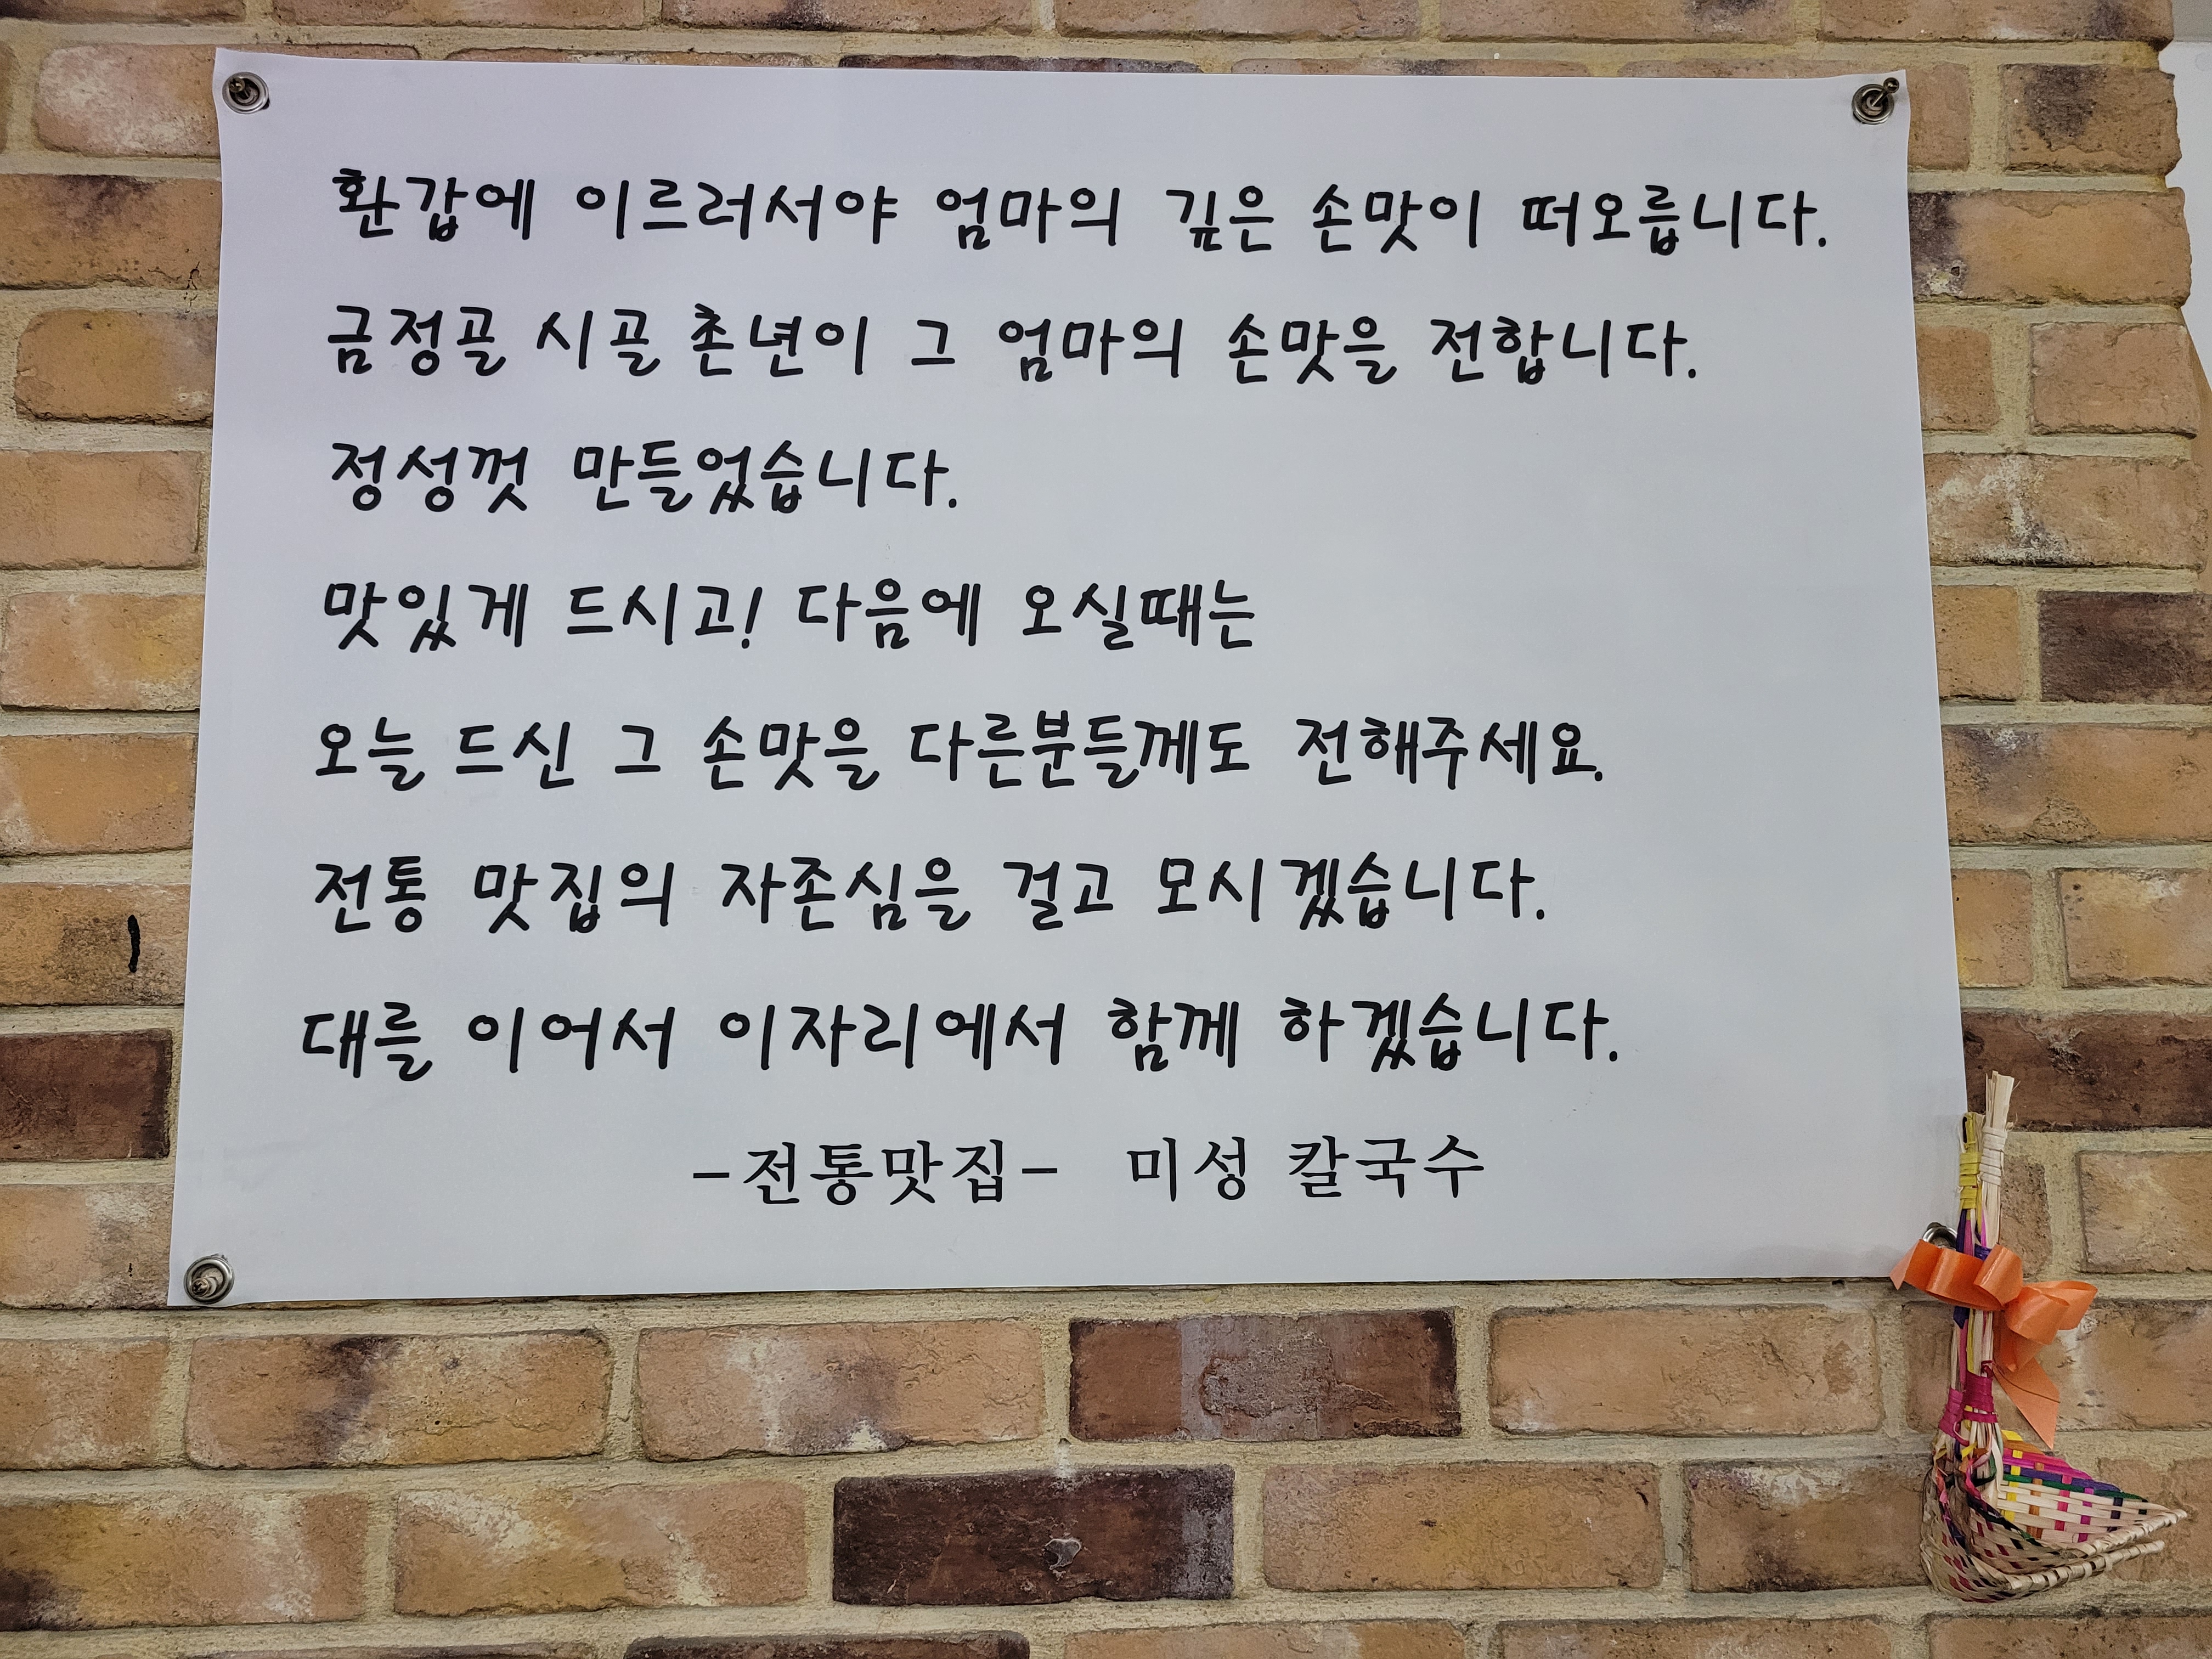 환갑에 이르러서야 엄마의 깊은 손맛이 떠오릅니다.
금정골 시골 촌년이 그 엄마의 손맛을 전합니다.
정성껏 만들었습니다.
맛있게 드시고! 다음에 오실때는
오늘 드신 그 손맛을 다른분들께도 전해주세요.
전통 맛집의 자존심을 걸고 모시겠습니다.
대를 이어서 이자리에서 함께 하겠습니다.
-전통맛집- 미성 칼국수